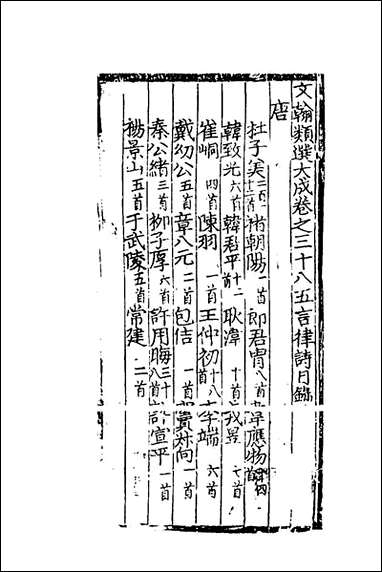 文翰類選大成卷之三十八五言律詩目錄
唐
杜子美 褚朝陽一首 郎君胄八首 韋應物
韓致光六首 韓君平十一 耿湋十首 戎昱七首
崔峒四首 陳羽一首 王仲初十八 李端六首
戴幼公五首 章八元二首 包佶一首 竇叔向一首
秦公緒三首 柳子厚六首 許用晦三十八首 許宣平一首
暢景山五首 于武陵五首 常建二首